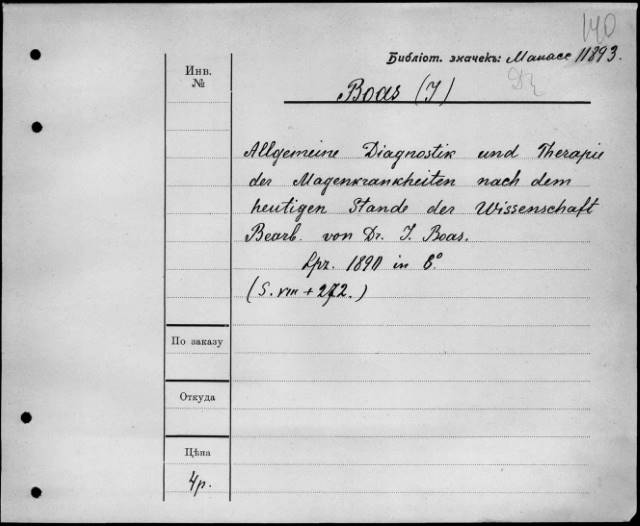 140
Библіот. значекъ: Манасе 11893.
Инв.
№
Boas (I)
Allgemeine Diagnostik und Therapie
der Magenkrankheiten nach dem
heutigen Stande der Wissenschaft
Bearb. von Dr. I. Boas.
Lpz. 1890 in 8°
(S. VIII + 272.)
По заказу
Откуда
Цѣна
4р.